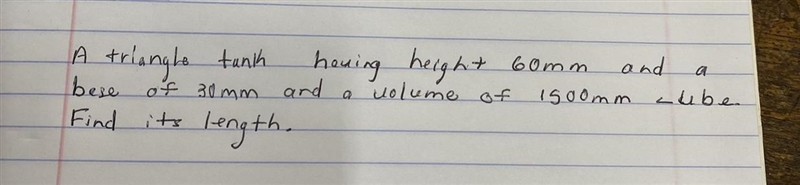 A triangle tank having height 60mm and a
bese of 30mm and a volume of 1500mm cube.
Find its length.